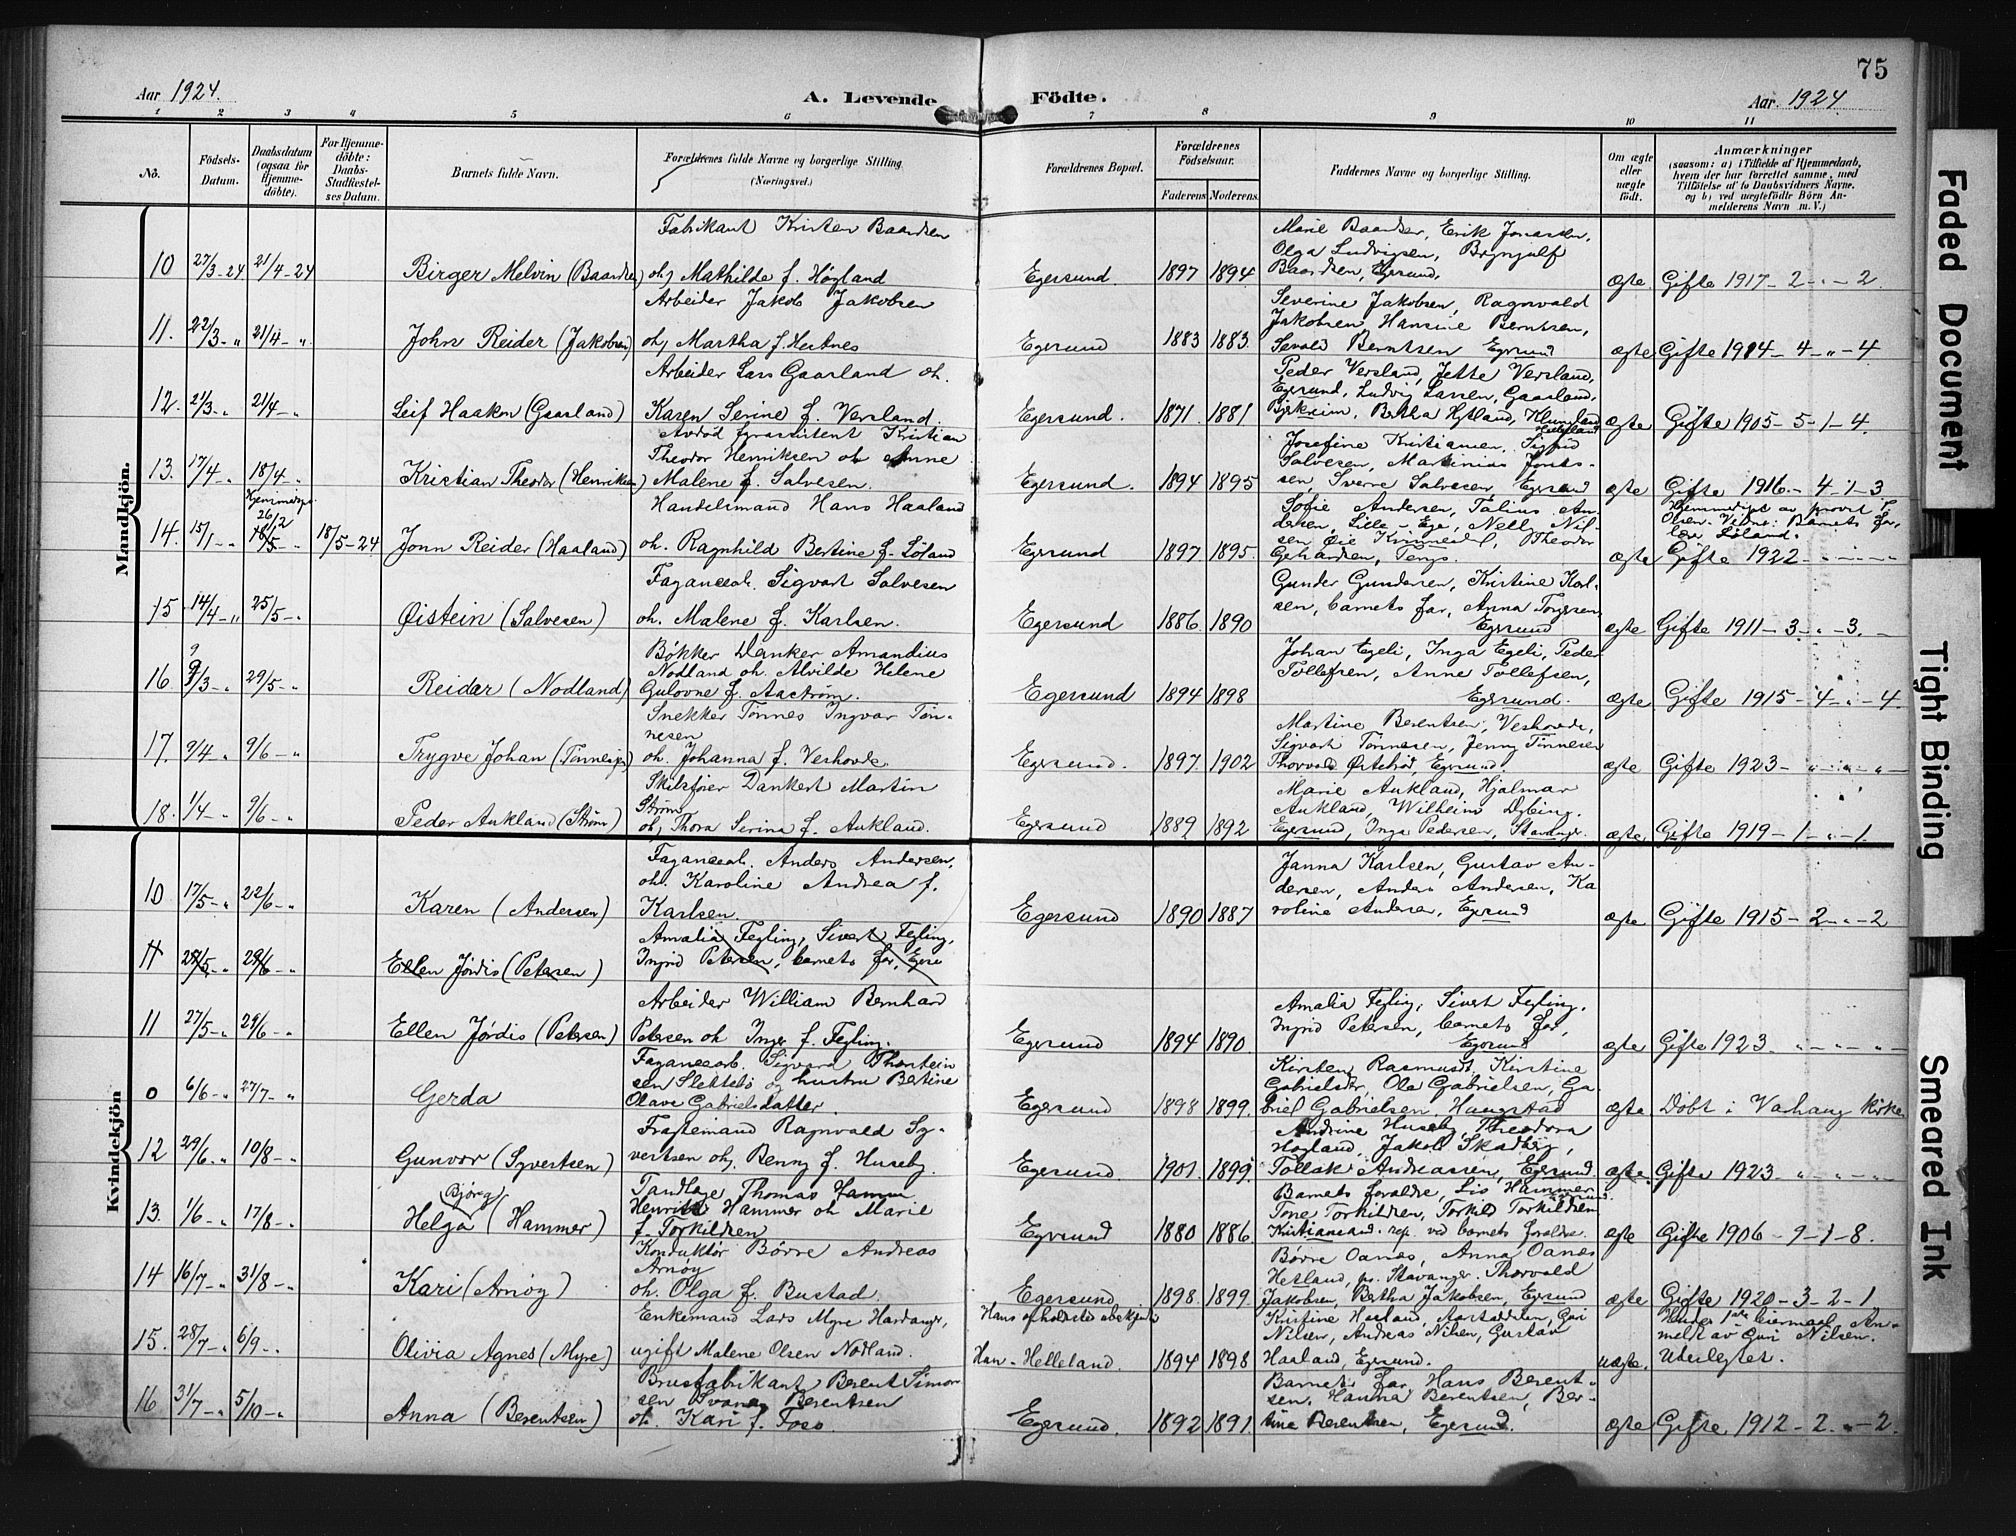 75
Aar 1924.
A. Levende Födte.
Aar 1924
1 2 3 4 5 6 7 8 9 10 11
No.
Födsels-Datum.
Daabsdatum (ogsaa for Hjemmedöbte).
For Hjemmedöbte: Daabs-Stadfæstelses Datum.
Barnets fulde Navn.
Forældrenes fulde Navne og borgerlige Stilling. (Næringsvei.)
Forældrenes Bopæl.
Forældrenes Födselsaar.
Faderens Moderens
Faddernes Navne og borgerlige Stilling.
Om ægte eller uægte födt.
Anmærkninger
(saasom: a) i Tilfælde af Hjemmedaab, hvem der har forrettet samme, med Tilföielse af to Daabsvidners Navne, og b) ved uægtefödte Börn Anmelderens Navn m. V.)
Mandkjön.
10 27/3-24 21/4-24 Birger Melvin (Baardsen)
Fabrikant Kristen Baardsen
oh, Mathilde f. Høgland
Egersund. 1897 1894
Marie Baardsen, Erik Jonassen,
Olga Ludvigsen, Brynjulf
Baardsen, Egersund.
ægte. Gifte 1917-2-"-2.
11. 22/3-" 21/4-" John Reider (Jakobsen)
Arbeider Jakob Jakobsen
oh, Martha f. Hertnes
Egersund 1883 1883.
Severine Jakobsen, Ragnvald
Jakobsen, Hansine Berntsen,
Sevald Berntsen Egersund
ægte Gifte 1914-4-"-4
12. 21/3-" 21/4-" Leif Haakon (Gaarland)
Arbeider Lars Gaarland oh.
Karen Serine f. Versland.
Egersund. 1871 1881
Peder Versland, Jette Versland,
Egersund, Ludvig Larsen, Gaarland,
Bjerkreim, Bertha Hytland,
ægte Gifte 1905-5-1-4.
13. 17/4-" 18/4-" Kristian Theodor (Henriksen)
Avdød fyrassistent Kristian
Theodor Henriksen oh Anne
Malene f. Salvesen.
Egersund. 1894 1895
Josefine Kristiansen, Sigfrid
Salvesen, Martinius Jonas-
sen, Sverre Salvesen, Egersund
ægte Gifte 1916-4-1-3
14. 15/1-" Hjemmedøpt 26/2 18/5-" 18/5-24 Jonn Reider (Haaland)
Handelsmand Hans Haaland
oh. Ragnhild Bertine f. Løland
Egersund 1897. 1895.
Sofie Andersen, Talius An-
dersen, Lille-Ege, Nelly Nil-
sen Øie Kvinnesdal, Theodor
Gerhardsen, Tengs.
Hjemmedøpt av provst T.
Olsen. Vidne: Barnets for-
ældre Løland.
ægte Gifte 1922-"-"-"
15 14/4-" 25/5-" Øistein (Salvesen)
Fayancearb. Sigvart Salvesen
oh. Malene f. Karlsen.
Egersund 1886. 1890
Gunder Gundersen, Kristine Karl-
sen, barnets far, Anna Torgersen
Egersund
ægte Gifte 1911-3-"-3.
16 9 9/3-" 29/5-" Reidar (Nodland)
Bøkker Danker Amandius
Nodland oh. Alvilde Helene
Gulovne f. Aastrøm.
Egersund 1894 1898
Johan Egeli, Inga Egeli, Peder
Tollefsen, Anne Tollefsen,
Egersund.
ægte Gifte 1915-4-"-4.
17. 9/4-" 9/6-" Trygve Johan (Tønnesen)
Snekker Tønnes Ingvar Tøn-
nesen
oh. Johanna f. Veshovde
Egersund. 1897. 1902
Martine Berentsen, Veshovde,
Sigvart Tønnesen, Jenny Tønnesen
Thorvald Ørtebrød, Egersund.
ægte Gifte 1923-"-"-"
18. 1/4-" 9/6-" Peder Aukland (Strøm)
Skibsfører Dankert Martin
Strøm
oh, Thora Serina f. Aukland.
Egersund 1889 1892
Marie Aukland, Hjalmar
Aukland, Wilhelm Dybing,
Egersund, Inga Pedersen, Stavanger.
ægte Gifte 1919-1-"-1.
Kvindekjön
10 17/5-" 22/6-" Karen (Andersen)
Fayancearb. Anders Andersen,
oh. Karoline Andrea f.
Karlsen
Egersund 1890 1887
Janna Karlsen, Gustav An-
dersen, Anders Andersen, Ka
roline Andersen, Egersund
ægte Gifte 1915-2-"-2
11 29/6-" Ellen Jørdis (Petersen)
Amalia Fegling, Sivert Fegling,
Ingrid Petersen, barnets far, Egersu
11 27/5-" 29/6-" Ellen Jørdis (Petersen)
Arbeider William Bernhard
Petersen oh Inger f. Fegling.
Egersund 1894 1890.
Amalia Fegling, Sivert Fegling,
Ingrid Petersen, barnets far,
Egersund
ægte Gifte 1923 "-"-"-"
0 6/6-" 27/7-" Gerda
Fayancearb. Sigvard Thorstein
sen Slettebø og hustru Bertine
Olava Gabrielsdatter.
Egersund 1898 1899.
Kirsten Rasmusd. Kirstine
Gabrielsdtr, Ole Gabrielsen, Ga-
briel Gabrielsen, Haugstad
ægte. Døbt i Varhaug Kirke
12 29/6-" 10/8-" Gunvor (Syvertsen)
Fragtemand Ragnvald Sy-
vertsen oh. Benny f. Huseby.
Egersund 1901. 1899.
Andrine Huseby, Theodora
Høgland, Jakob Skadberg,
Tollak Andreassen, Egersund
ægte. Gifte 1923 "-"-"
13. 1/6-" 17/8-" Helga Bjørg (Hammer)
Tandlæge Thomas Hamm
Henrik Hammer oh Marie
f. Torkildsen
Egersund 1880 1886.
Barnets foraldre, Lis Hammer Egersund.
Tone Torkildsen, Torkild Torkildsen
Kristianssand. rep. ved barnets foraldre.
ægte Gifte 1906-9-1-8.
14 16/7-" 31/8-" Kari (Arnøy)
Konduktør Børre Andreas
Arnøy
oh. Olga f. Bustad.
Egersund 1898. 1899
Børre Oanæs, Anna Oanæs
Hetland, pr. Stavanger. Thorvald
Jakobsen, Bertha Jakobsen, Egersund
ægte Gifte 1920-3-2-1
15. 28/7-" 6/9-" Olivia Agnes (Myre)
Enkemand Lars Myre Hardanger,
ugift Malene Olsen Nodland.
Hans opholdssted ubekjendt
Hun - Helleland. 1894 1898
Kristine Haaland, Guri
Nilsen, Andreas Nilsen, Gustav
Haaland, Egersund.
uægte. Hendes 1ste leiermaal. An-
meldt av Guri Nilsen.
Uberlegtet.
16 31/7-" 5/10-" Anna (Berentsen)
Brusfabrikant Berent Simon
sen Svanes Berentsen
oh. Kari f. Foss
Egersund. 1892 1891.
Barnets far, Hans Berent-
sen. Hanna Berentsen, Ber-
tine Berentsen, Egersund.
ægte Gifte 1912-2.-"-2.
Faded Document
Tight Binding
Smeared Ink